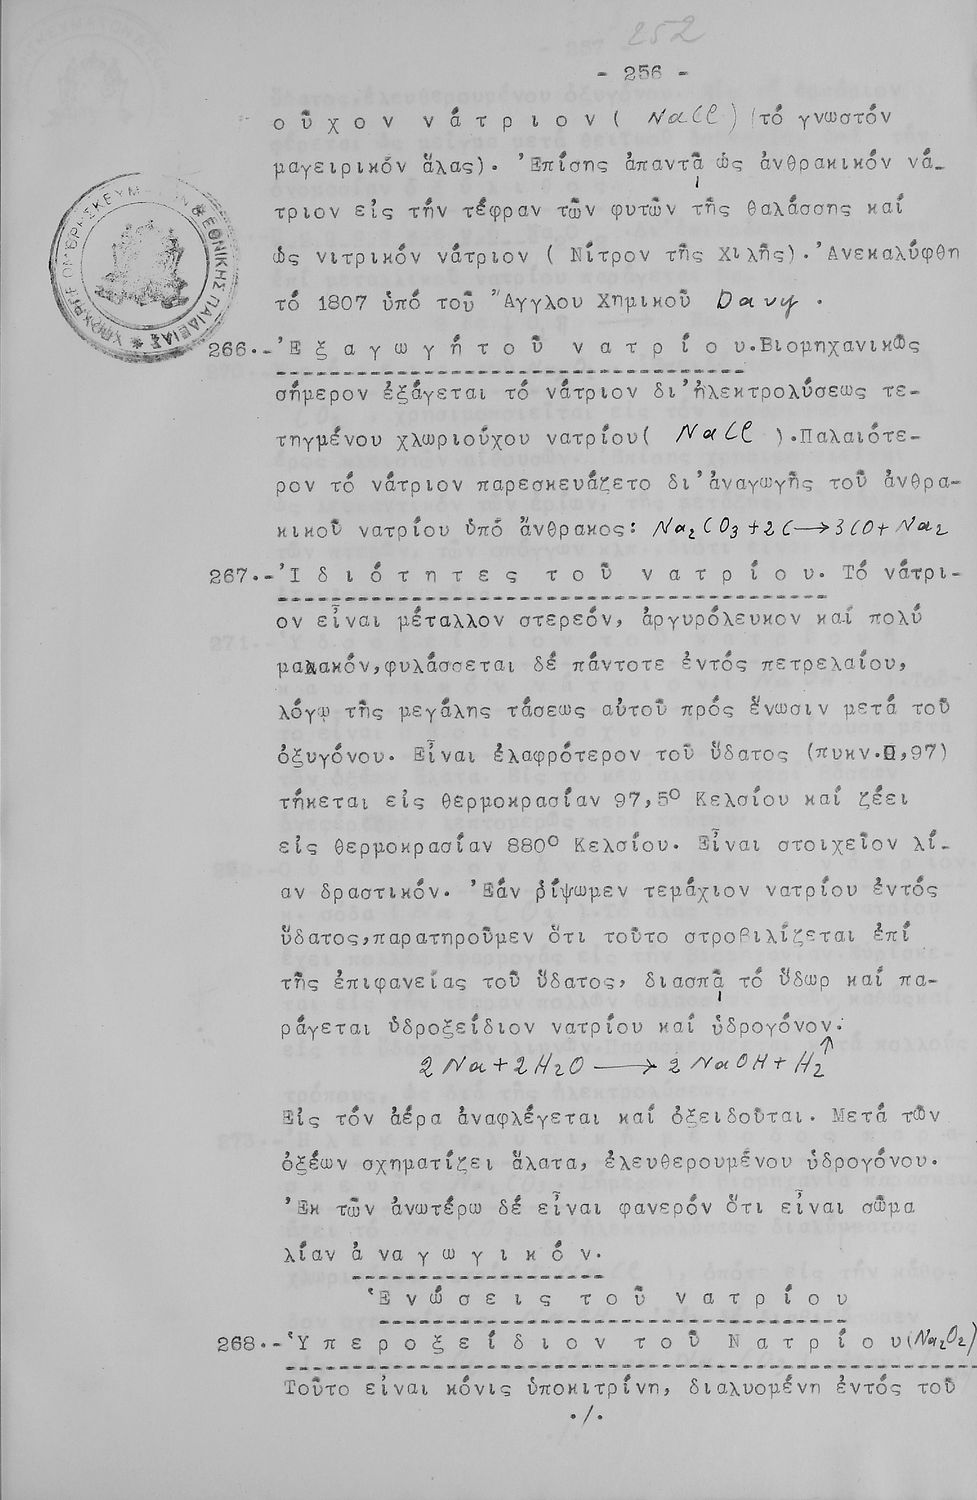 252
- 256 -
ο ῦ χ ο ν   ν ά τ ρ ι ο ν ( NaCl ) (τό γνωστόν
μαγειρικόν ἅλας). Ἐπίσης ἀπαντᾷ ὡς ἀνθρακικόν νά-
τριον εἰς τήν τέφραν τῶν φυτῶν τῆς θαλάσσης καί
ὡς νιτρικόν νάτριον ( Νίτρον τῆς Χιλῆς). Ἀνεκαλύφθη
τό 1807 ὑπό τοῦ Ἄγγλου Χημικοῦ Davy .
266.-Ἐ ξ α γ ω γ ή τ ο ῦ   ν α τ ρ ί ο υ.Βιομηχανικῶς
σήμερον ἐξάγεται τό νάτριον δι'ἠλεκτρολύσεως τε-
τηγμένου χλωριούχου νατρίου( NaCl ).Παλαιότε-
ρον τό νάτριον παρεσκευάζετο δι'ἀναγωγῆς τοῦ ἀνθρα-
κικοῦ νατρίου ὑπό ἄνθρακος: Na₂CO₃+2C→3CO+Na₂
267.-Ἰ δ ι ό τ η τ ε ς   τ ο ῦ   ν α τ ρ ί ο υ. Τό νάτρι-
ον εἶναι μέταλλον στερεόν, ἀργυρόλευκον καί πολύ
μαλακόν,φυλάσσεται δέ πάντοτε ἐντός πετρελαίου,
λόγῳ τῆς μεγάλης τάσεως αὐτοῦ πρός ἕνωσιν μετά τοῦ
ὀξυγόνου. Εἶναι ἐλαφρότερον τοῦ ὕδατος (πυκν.0,97)
τήκεται εἰς θερμοκρασίαν 97,5° Κελσίου καί ζέει
εἰς θερμοκρασίαν 880° Κελσίου. Εἶναι στοιχεῖον λί-
αν δραστικόν. Ἐάν ῥίψωμεν τεμάχιον νατρίου ἐντός
ὕδατος,παρατηροῦμεν ὅτι τοῦτο στροβιλίζεται ἐπί
τῆς ἐπιφανείας τοῦ ὕδατος, διασπᾷ τό ὕδωρ καί πα-
ράγεται ὑδροξείδιον νατρίου καί ὑδρογόνον:
2Na+2H₂O → 2NaOH+H₂↑
Εἰς τόν ἀέρα ἀναφλέγεται καί ὀξειδοῦται. Μετά τῶν
ὀξέων σχηματίζει ἅλατα, ἐλευθερουμένου ὑδρογόνου.
Ἐκ τῶν ἀνωτέρω δέ εἶναι φανερόν ὅτι εἶναι σῶμα
λίαν ἀ ν α γ ω γ ι κ ό ν.
Ἑ ν ώ σ ε ι ς   τ ο ῦ   ν α τ ρ ί ο υ
268.-Ὑ π ε ρ ο ξ ε ί δ ι ο ν   τ ο ῦ   Ν α τ ρ ί ο υ(Na₂O₂)
Τοῦτο εἶναι κόνις ὑποκιτρίνη, διαλυομένη ἐντός τοῦ
./.